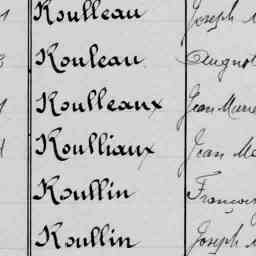 Roulleau Joseph
Rouleau
Roulleaux Jean Marie
Roulliaux Jean
Roullin
Roullin Joseph